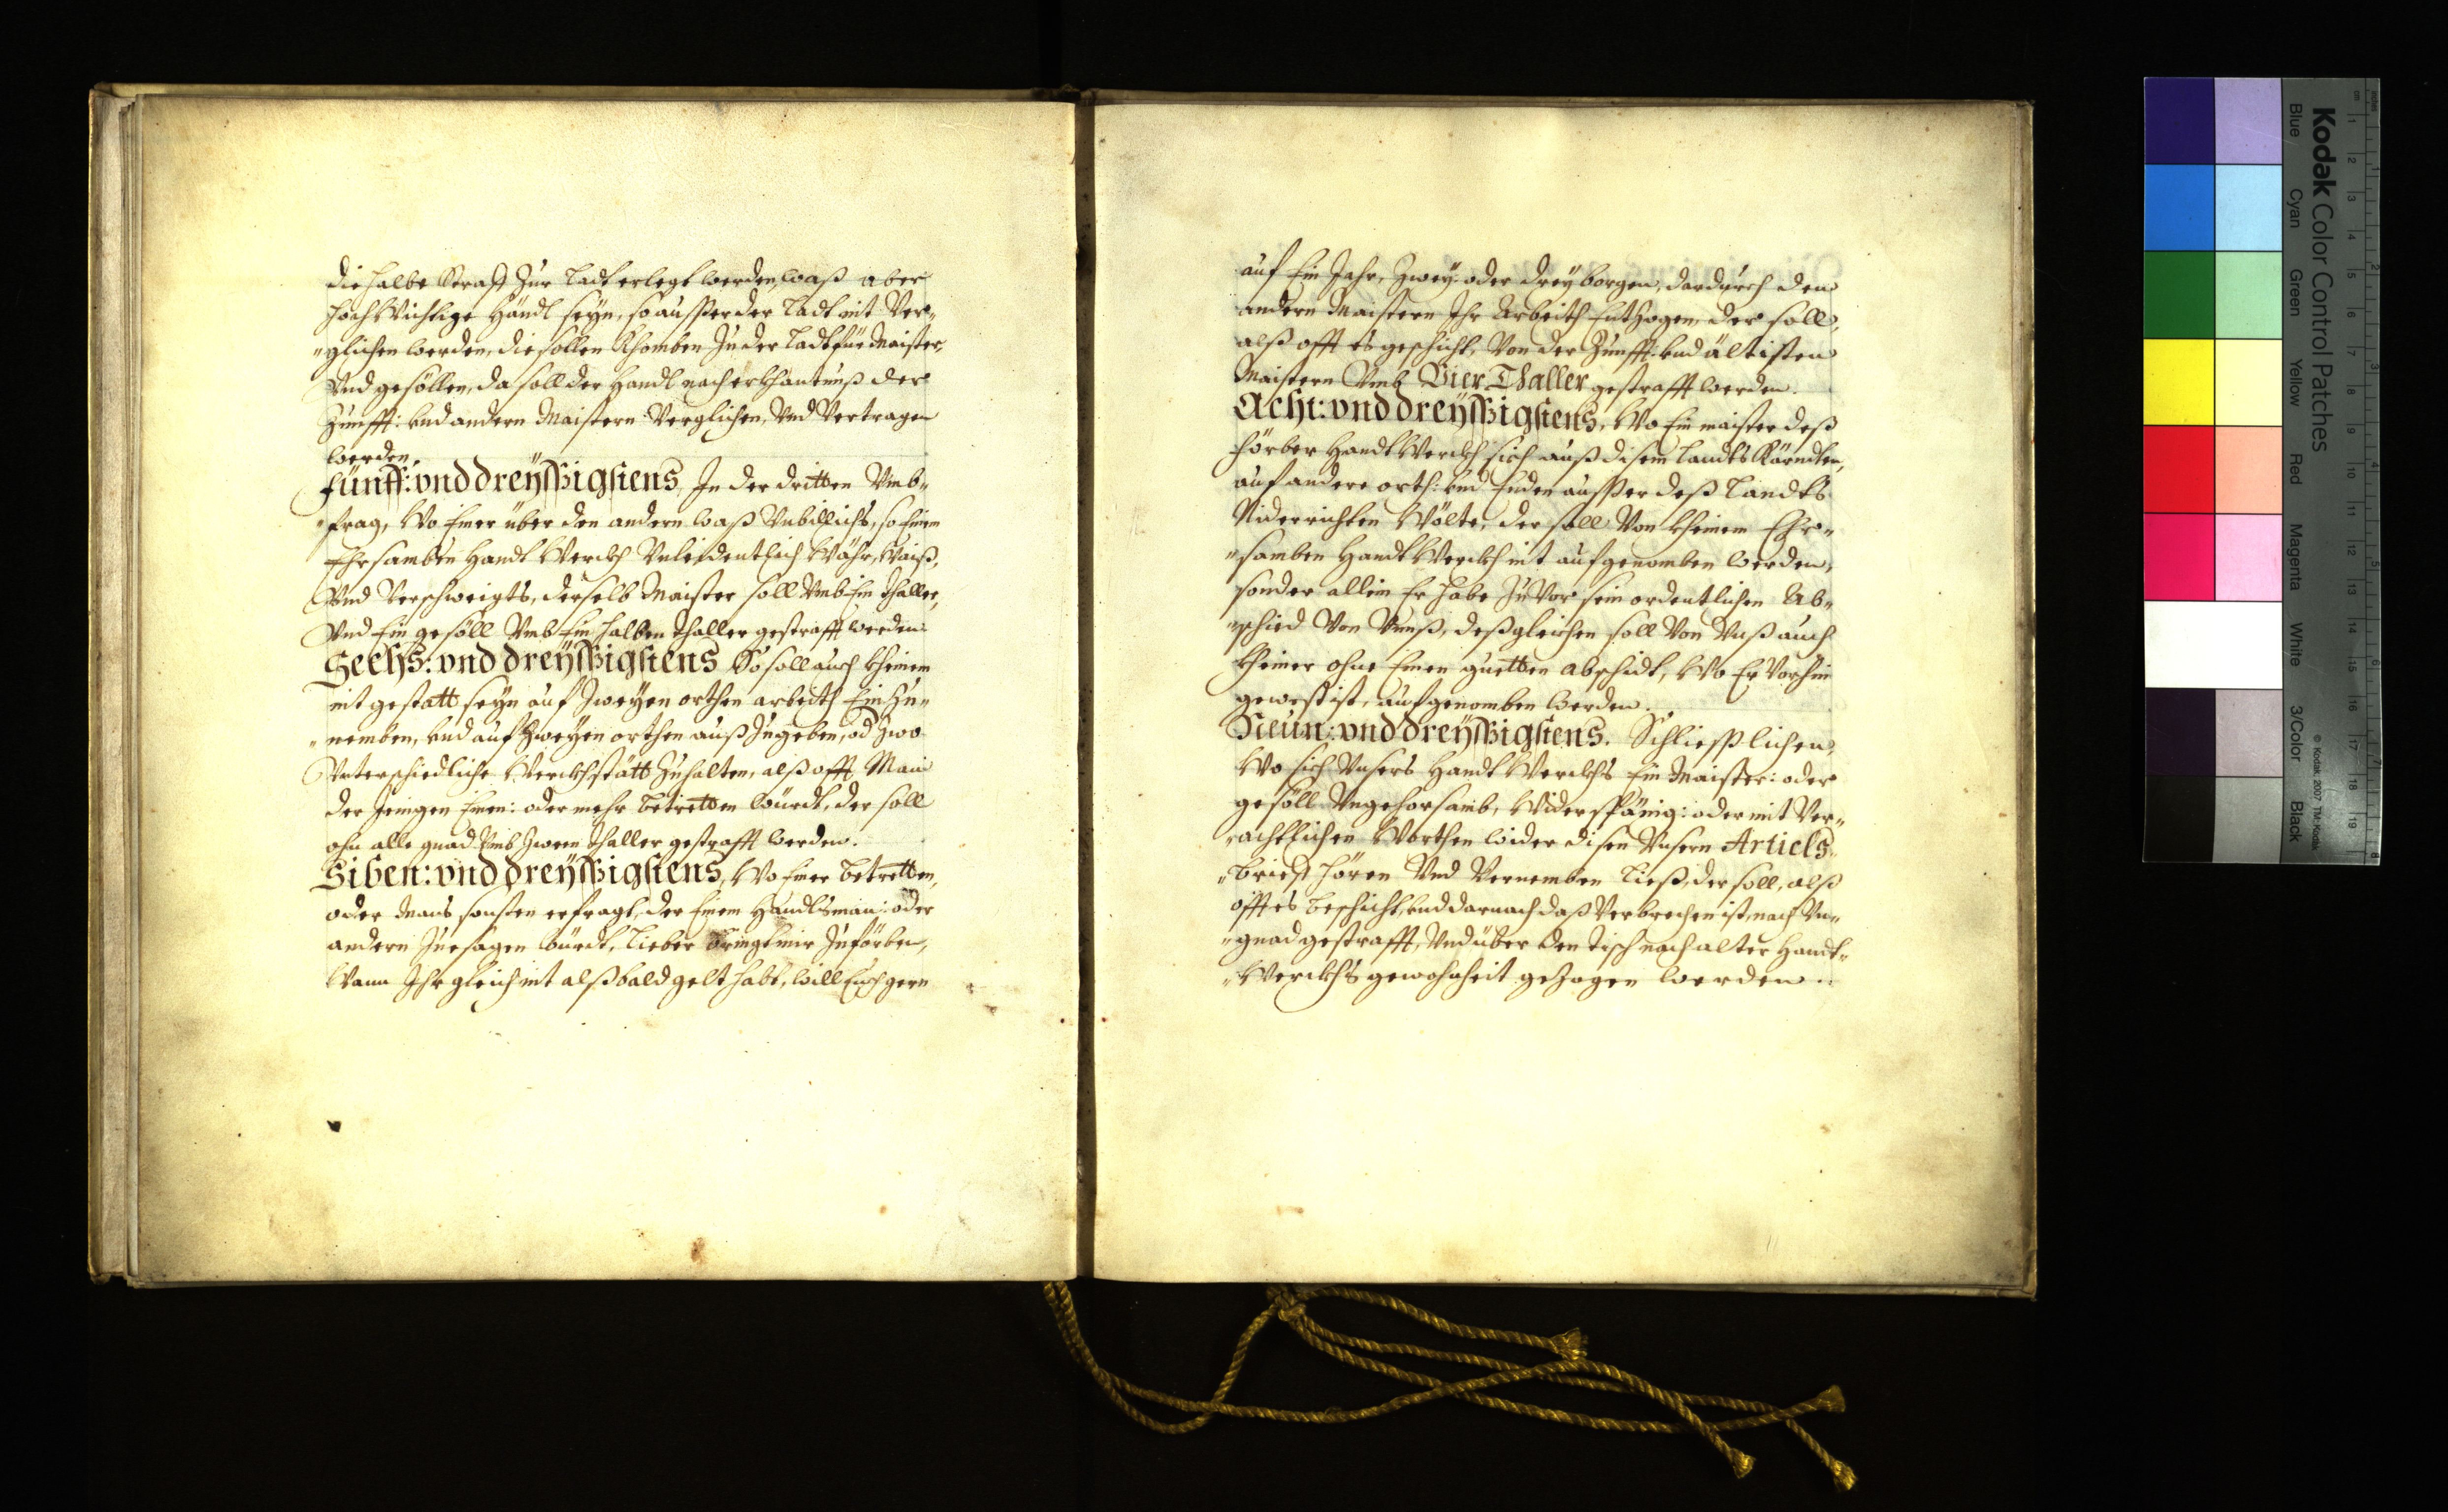 die halbe Straff Zur Ladt erlegt werden, waß aber
hochwichtige Händl seyn, so ausser der Ladt nit Ver„
„glichen werden, die sollen Khomben Zu der Ladt für Maister,
Vnd gesöllen, da soll der Handl nach erkhantnuß der
Zunfft: vnd andern Maistern Verglichen, Vnd Vertragen
werden.
Fünff: vnd dreyssigistens, In der dritten Vmb„
„frag, Wo Einer über den andern waß Vnbillichs, so Einem
Ehrsamben Handt Werckh Vnleidentlich Währ, Waiß,
Vnd Verschweigts, derselb Maister soll Vmb Ein Thaller,
Vnd Ein gesöll Vmb Ein halben Thaller gestrafft werden.
Sechs: vnd dreyssigistens So soll auch kheinem
nit gestatt seyn auf Zweyen orthen arbeith Ein Zu„
„nemben, vnd auf Zweyen orthen auß Zugeben, od Zwo
Vnterschiedliche Werckhstätt Zuhalten, alß offt Man
der Jenigen Einen: oder mehr betretten würdt, der soll
ohn alle gnad Vmb Zween Thaller gestrafft werden.
Siben: vnd dreyssigistens, Wo Einer betretten,
oder Mans sonsten erfragt, der Einem Handlsman: oder
andern Zuesagen würdt, lieber bringt mir Zuförben,
Wann Ihr gleich nit alßbald gelt habt, will Euch gern
auf Ein Jahr, Zwey: oder drey borgen, dardurch den
andern Maistern Ihr Arbeith Entzogen, der soll,
alß offt es geschicht, Von der Zunfft: vnd ältisten
Maistern Vmb Vier Thaller gestrafft werden.
Acht: vnd dreyssigistens, Wo Ein maister deß
förber Handt Werckh sich auß disem Landts Kärndten,
auf andere orth: vnd Enden ausser deß Landts
Niderrichten Wölte, der soll Von kheinem Ehr„
„samben Handt Werckh nit aufgenomben werden,
sonder allein Er habe Zuvor sein ordentlichen Ab„
„schied Von Vnnß, deßgleichen soll Von Vnß auch
kheiner ohne Einen guetten abschidt, Wo Er Vorhin
gewest ist, aufgenomben werden.
Neün: vnd dreyssigistens. Schliesslichen,
Wo sich Vnsers Handt Werckhs Ein Maister: oder
gesöll Vngehorsamb, Widerspänig: oder mit Ver„
„achtlichen Worthen wider disen Vnsern Articls„
„brieff hören Vnd Vernemben ließ, der soll, alß
offt es beschicht, vnd darnach daß Verbrechen ist, nach Vn„
„gnad gestrafft, Vnd über den Tisch nach alter Handt„
„Werckhs gewohnheit gezogen werden.
Kodak Color Control Patches
Blue
Cyan
Green
Yellow
Red
Magenta
White
3/Color
Black
© Kodak, 2007 TM: Kodak